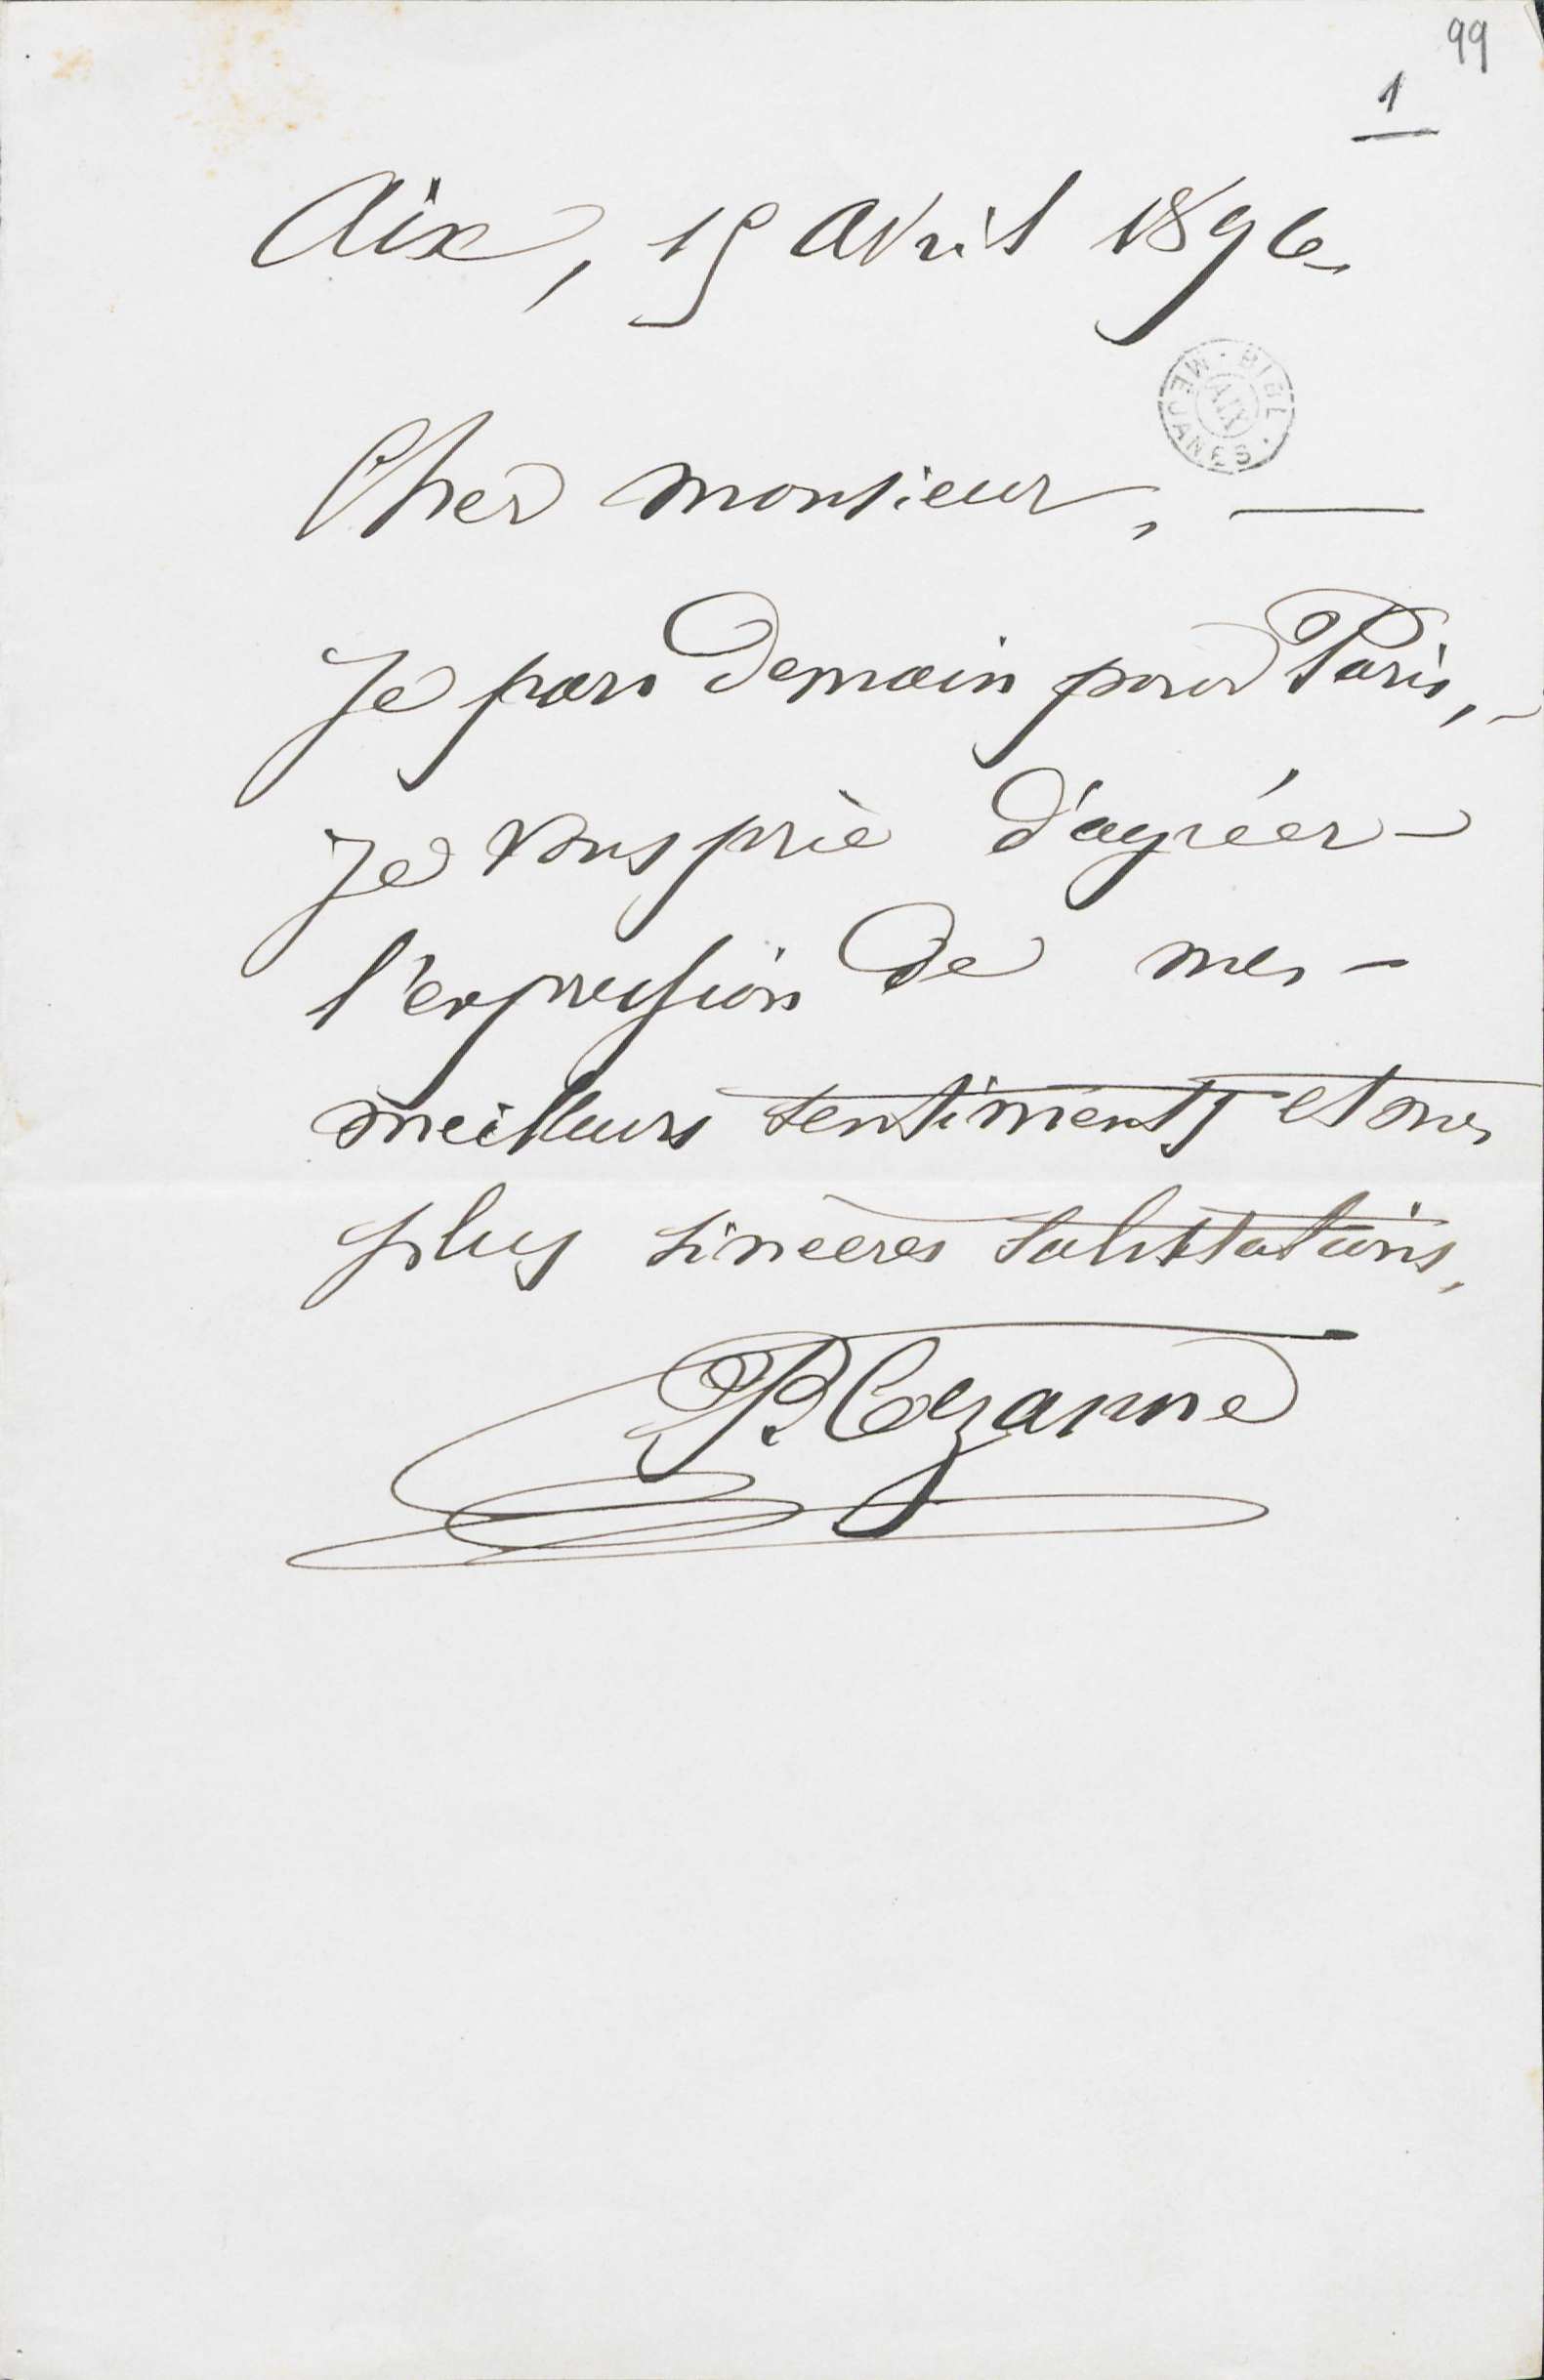 99
1
Aix, 15 avril 1896
Cher monsieur, —
Je pars demain pour Paris, -
je vous prie d'agréer -
l'expression de mes -
meilleurs sentiments et mes
plus sincères salutations,
P. Cezanne
BIBL. MEJANES.
AIX